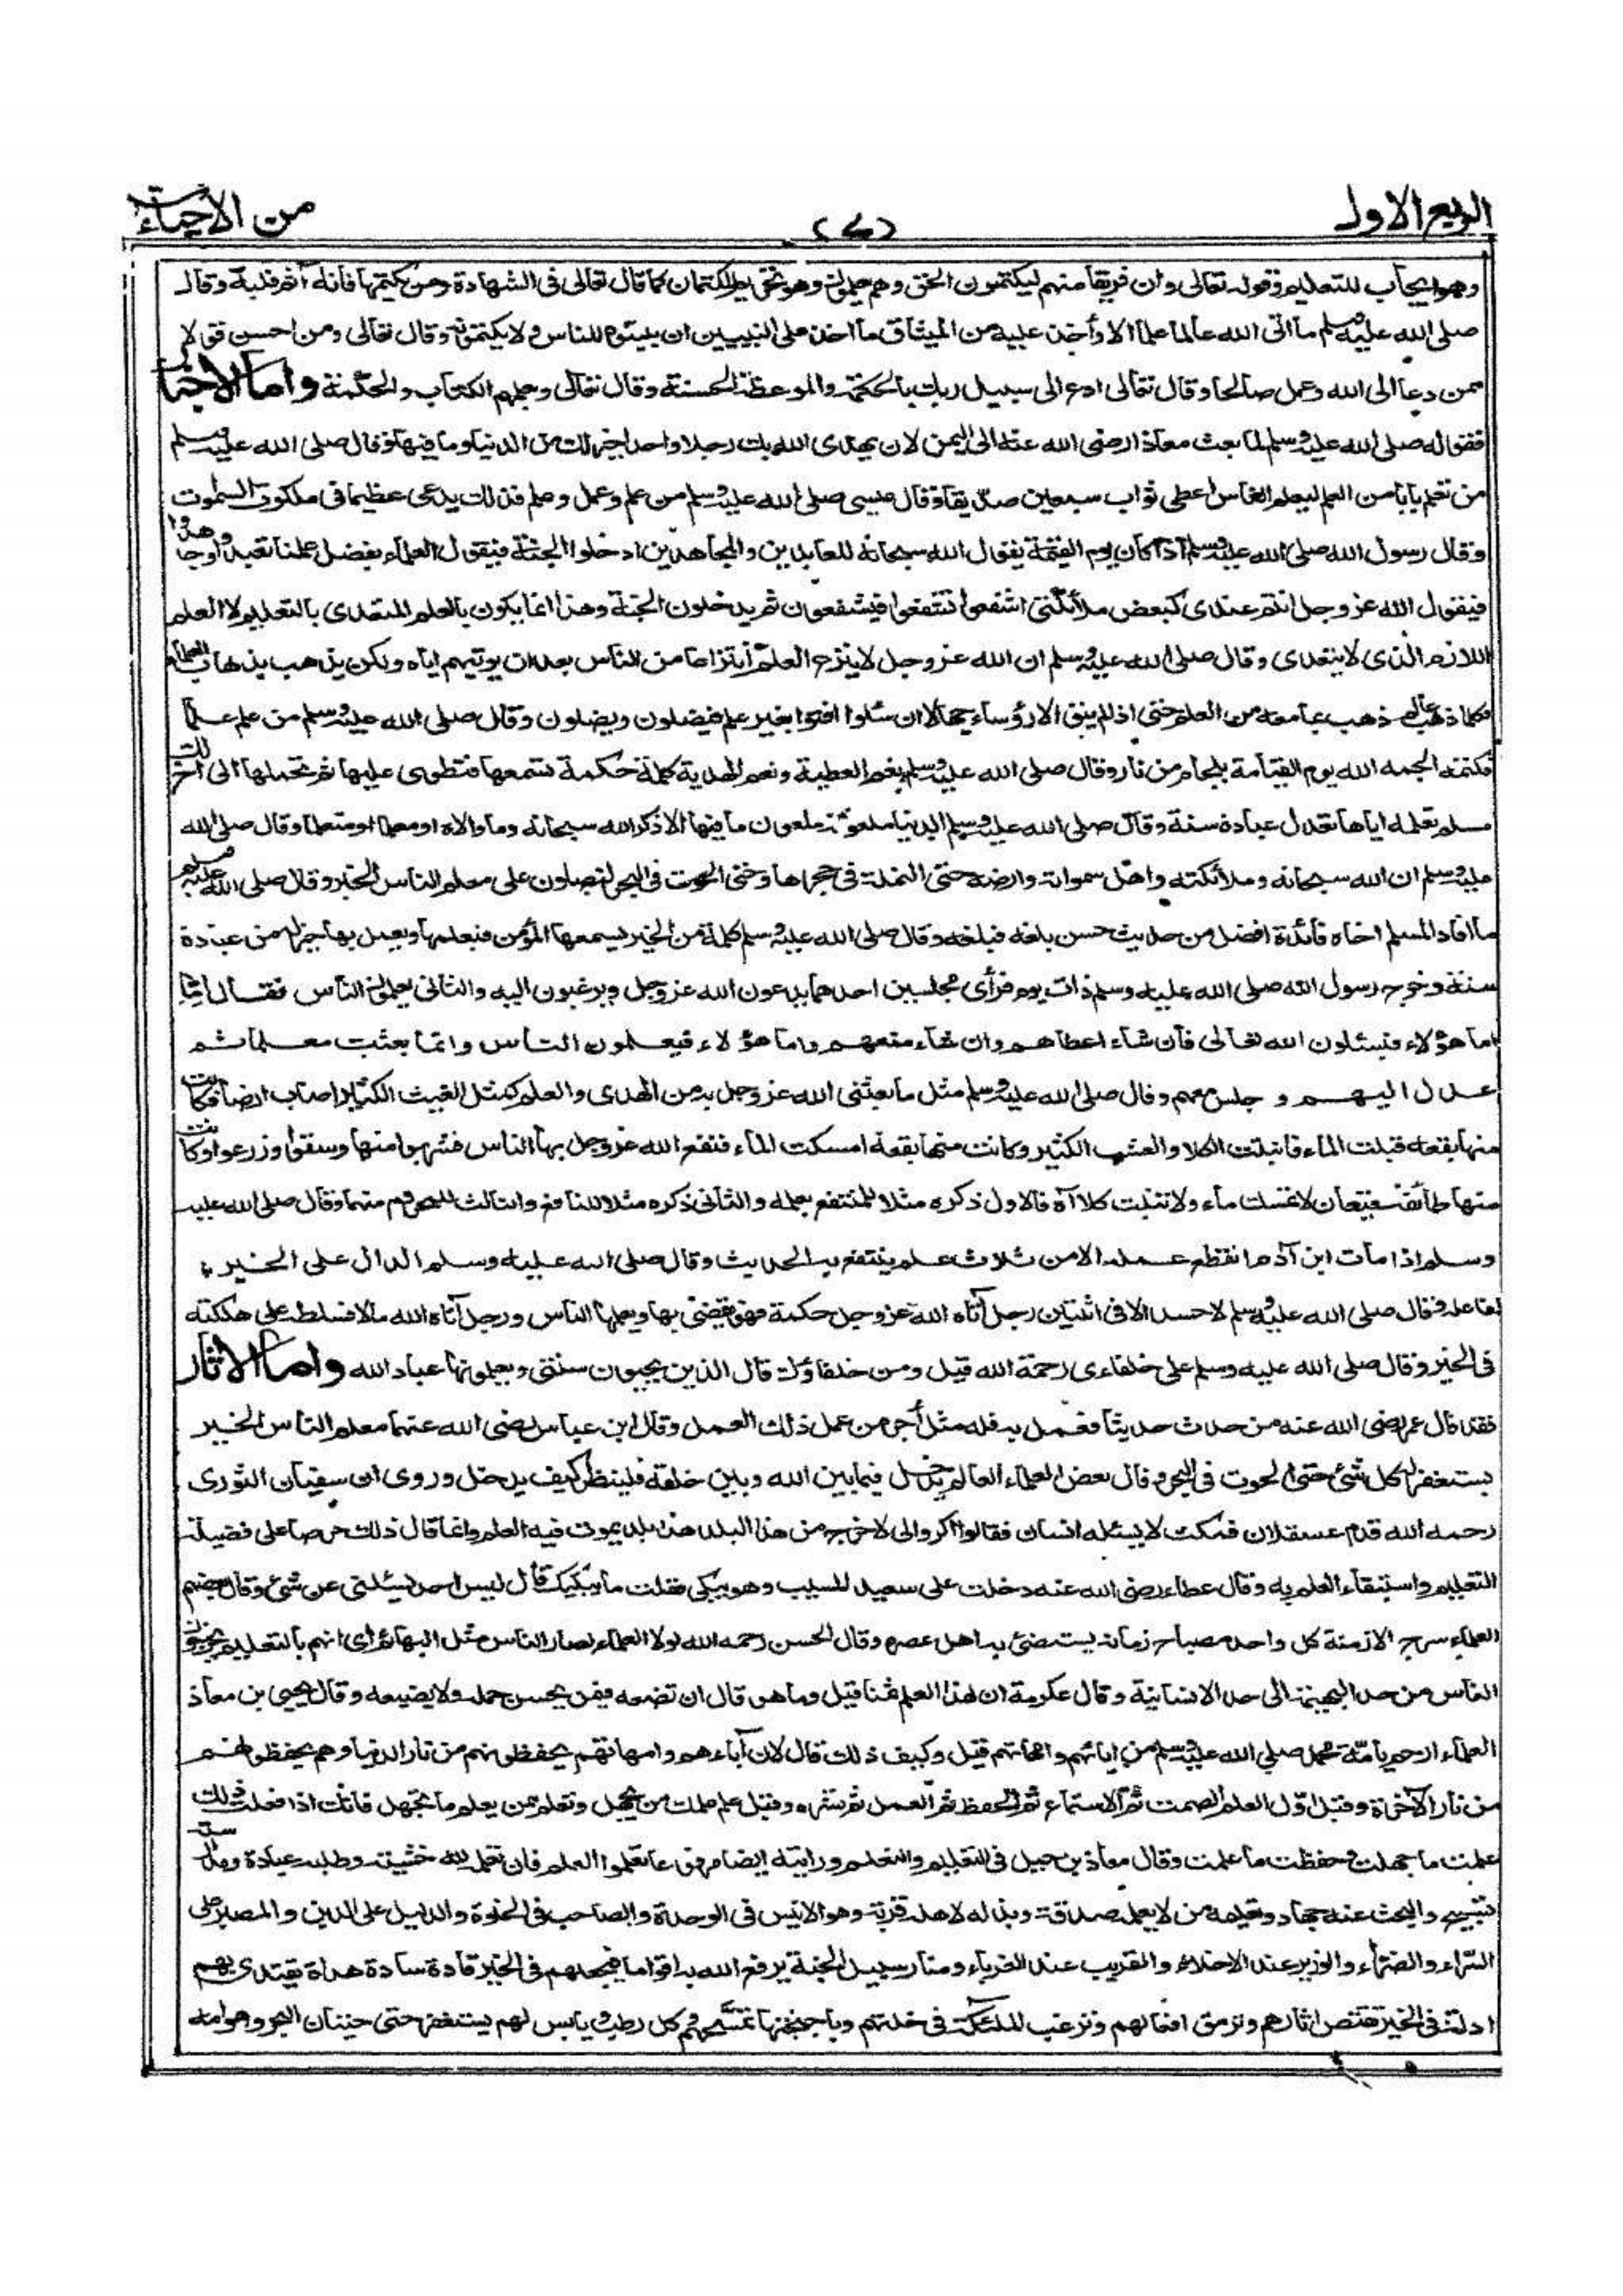 الربع الاول
(٧)
من الاحياء
وهو ايجاب للتعليم وقوله تعالى وان فريقا منهم ليكتمون الحق وهم يعلمون وهو تحريم للكتمان كما قال تعالى فى الشهادة ومن يكتمها فانه آثم قلبه وقال
صلى الله عليه وسلم ما اتى الله عالما علما الا وأخذ عليه من الميثاق ما اخذ على النبيين ان يبينوه للناس ولا يكتمونه وقال تعالى ومن احسن قولا
ممن دعا الى الله وعمل صالحا وقال تعالى ادع الى سبيل ربك بالحكمة والموعظة الحسنة وقال تعالى ويعلمهم الكتاب والحكمة واما الاخبار
فقوله صلى الله عليه وسلم لما بعث معاذا رضى الله عنه الى اليمن لان يهدى الله بك رجلا واحدا خير لك من الدنيا وما فيها وقال صلى الله عليه وسلم
من تعلم بابا من العلم ليعلم الناس اعطى ثواب سبعين صديقا وقال عيسى صلى الله عليه وسلم من علم وعمل وعلم فذلك يدعى عظيما فى ملكوت السموت
وقال رسول الله صلى الله عليه وسلم اذا كان يوم القيمة يقول الله سبحانه للعابدين والمجاهدين ادخلوا الجنة فيقول العلماء بفضل علمنا تعبدوا وجاهدوا
فيقول الله عز وجل انتم عندى كبعض ملائكتى اشفعوا تشفعوا فيشفعون ثم يدخلون الجنة وهذا انما يكون بالعلم المتعدى بالتعليم لا العلم
اللازم الذى لا يتعدى وقال صلى الله عليه وسلم ان الله عز وجل لا ينزع العلم انتزاعا من الناس بعد ان يوتيهم اياه ولكن يذهب بذهاب العلماء
فكلما ذهب عالم ذهب بما معه من العلم حتى اذا لم يبق الا رؤساء جهالا ان سئلوا افتوا بغير علم فيضلون ويضلون وقال صلى الله عليه وسلم من علم علما
فكتمه الجمه الله يوم القيامة بلجام من نار وقال صلى الله عليه وسلم نعم العطية ونعم الهدية كلمة حكمة تسمعها فتطوى عليها ثم تحملها الى اخ لك
مسلم تعلمه اياها تعدل عبادة سنة وقال صلى الله عليه وسلم الدنيا ملعونة ملعون ما فيها الا ذكر الله سبحانه وما والاه او معلما او متعلما وقال صلى الله
عليه وسلم ان الله سبحانه وملائكته واهل سمواته وارضه حتى النملة فى حجرها وحتى الحوت فى البحر ليصلون على معلم الناس الخير وقال صلى الله عليه وسلم
ما افاد المسلم اخاه فائدة افضل من حديث حسن بلغه فبلغه وقال صلى الله عليه وسلم كلمة من الخير يسمعها المؤمن فيعلمها ويعمل بها خير له من عبادة
سنة وخرج رسول الله صلى الله عليه وسلم ذات يوم فرأى مجلسين احدهما يدعون الله عز وجل ويرغبون اليه والثانى يعلمون الناس فقال
اما هؤلاء فيسئلون الله تعالى فان شاء اعطاهم وان شاء منعهم واما هؤلاء فيعلمون الناس وانما بعثت معلما ثم
عدل اليهم و جلس معهم وقال صلى الله عليه وسلم مثل ما بعثنى الله عز وجل به من الهدى والعلم كمثل الغيث الكثير اصاب ارضا فكانت
منها بقعة قبلت الماء فانبتت الكلا والعشب الكثير وكانت منها بقعة امسكت الماء فنفع الله عز وجل بها الناس فشربوا منها وسقوا وزرعوا وكانت
منها طائفة قيعان لا تمسك ماء ولا تنبت كلا فالاول ذكره مثلا للمنتفع بعلمه والثانى ذكره مثلا للنافع والثالث للمحروم منهما وقال صلى الله عليه
وسلم اذا مات ابن آدم انقطع عمله الا من ثلاث علم ينتفع به الحديث وقال صلى الله عليه وسلم الدال على الخير
كفاعله وقال صلى الله عليه وسلم لا حسد الا فى اثنين رجل آتاه الله عز وجل حكمة فهو يقضى بها ويعلمها الناس ورجل آتاه الله مالا فسلط على هلكته
فى الخير وقال صلى الله عليه وسلم على خلفاءى رحمة الله قيل ومن خلفاؤك قال الذين يحيون سنتى ويعلمونها عباد الله واما الاثار
فقد قال عمر رضى الله عنه من حدث حديثا فعمل به فله مثل أجر من عمل ذلك العمل وقال ابن عباس رضى الله عنهما معلم الناس الخير
يستغفر له كل شئ حتى الحوت فى البحر وقال بعض العلماء العالم يدخل فيما بين الله وبين خلقه فلينظر كيف يدخل وروى ان سفيان الثورى
رحمه الله قدم عسقلان فمكث لا يسئله انسان فقال اكروا لى لاخرج من هذا البلد هذا بلد يموت فيه العلم وانما قال ذلك حرصا على فضيلة
التعليم واستبقاء العلم به وقال عطاء رضى الله عنه دخلت على سعيد المسيب وهو يبكى فقلت ما يبكيك قال ليس احد يسئلنى عن شئ وقال بعضهم
العلماء سرج الازمنة كل واحد مصباح زمانه يستضئ به اهل عصره وقال الحسن رحمه الله لولا العلماء لصار الناس مثل البهائم اى انهم بالتعليم يخرجون
الناس من حد البهيمة الى حد الانسانية وقال عكرمة ان لهذا العلم ثمنا قيل وما هو قال ان تضعه فيمن يحسن حمله ولا يضيعه وقال يحيى بن معاذ
العلماء ارحم بامة محمد صلى الله عليه وسلم من ابائهم وامهاتهم قيل وكيف ذلك قال لان آباءهم وامهاتهم يحفظونهم من نار الدنيا وهم يحفظونهم
من نار الآخرة وقيل اول العلم الصمت ثم الاستماع ثم الحفظ ثم العمل ثم نشره وقيل علم علمك من يجهل وتعلم ممن يعلم ما تجهل فانك اذا فعلت ذلك
علمت ما جهلت وحفظت ما علمت وقال معاذ بن جبل فى التعليم والتعلم ورايته ايضا مرفوعا تعلموا العلم فان تعلمه لله خشية وطلبه عبادة ومدارسته
تسبيح والبحث عنه جهاد وتعليمه من لا يعلمه صدقة وبذله لاهله قربة وهو الانيس فى الوحدة والصاحب فى الخلوة والدليل على الدين والمصبر على
السراء والضراء والوزير عند الاخلاء والقريب عند الغرباء ومنار سبيل الجنة يرفع الله به اقواما فيجعلهم فى الخير قادة سادة هداة يقتدى بهم
ادلة فى الخير تقتص اثارهم وترمق افعالهم وترغب الملئكة فى خلتهم وباجنحتها تمسحهم كل رطب ويابس لهم يستغفر حتى حيتان البحر وهوامه